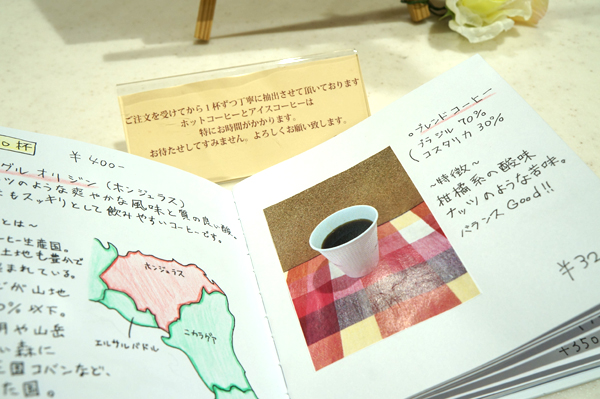 ご注文を受けてから1杯ずつ丁寧に抽出させて頂いております
ホットコーヒーとアイスコーヒーは
特にお時間がかかります。
お待たせしてすみません。よろしくお願い致します。
杯
¥400-
グル オリジン (ホンジュラス)
ツのような爽やかな風味と質の良い酸。
もスッキリとして飲みやすいコーヒーです。
とは〜
ーヒー生産国。
土地も豊かで
まれている。
が山地
0%以下。
明や山岳
い森に
王国コパンなど、
た国。
ホンジュラス
エルサルバドル
ニカラグア
ブレンドコーヒー
ブラジル 70%
コスタリカ 30%
〜特徴〜
柑橘系の酸味
ナッツのような苦味。
バランス Good!!
¥32
¥350